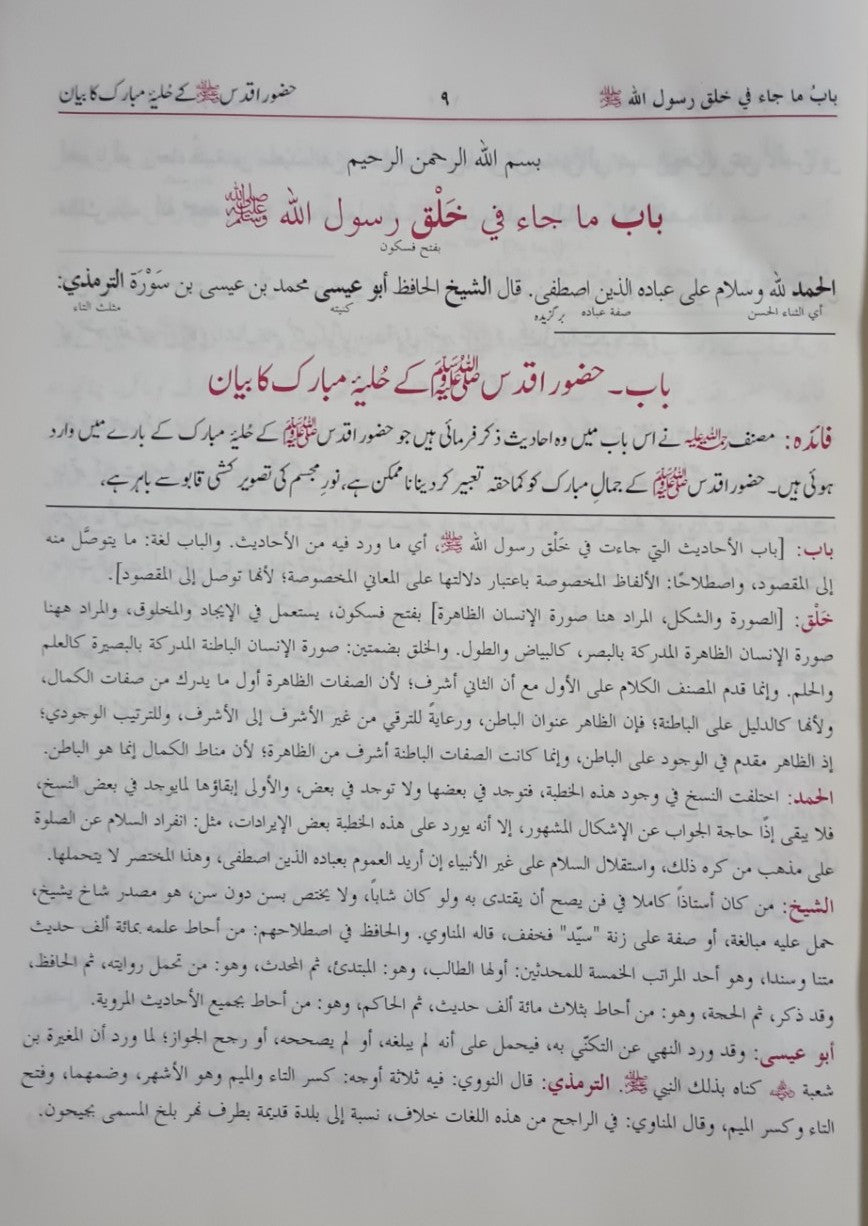 بابُ ما جاء في خلق رسول الله ﷺ ٩ حضور اقدس ﷺ کے حُلیۂ مبارک کا بیان
بسم الله الرحمن الرحيم
باب ما جاء في خَلْق رسول الله ﷺ
بفتح فسكون
الحمد لله وسلام على عباده الذين اصطفى. قال الشيخ الحافظ أبو عيسى محمد بن عيسى بن سَوْرَة الترمذي:
أي الثناء الحسن صفة عباده برگزیدہ كنيته مثلث التاء
باب۔ حضور اقدس ﷺ کے حُلیۂ مبارک کا بیان
فائدہ: مصنف رحمہ اللہ علیہ نے اس باب میں وہ احادیث ذکر فرمائی ہیں جو حضور اقدس ﷺ کے حُلیۂ مبارک کے بارے میں وارد
ہوئی ہیں۔ حضور اقدس ﷺ کے جمالِ مبارک کو کماحقہ تعبیر کر دینا ناممکن ہے، نورِ مجسم کی تصویر کشی قابو سے باہر ہے،
باب: [باب الأحاديث التي جاءت في خَلْق رسول الله ﷺ، أي ما ورد فيه من الأحاديث. والباب لغة: ما يتوصَّل منه
إلى المقصود، واصطلاحًا: الألفاظ المخصوصة باعتبار دلالتها على المعاني المخصوصة؛ لأنها توصل إلى المقصود].
خَلْق: [الصورة والشكل، المراد هنا صورة الإنسان الظاهرة] بفتح فسكون، يستعمل في الإيجاد والمخلوق، والمراد ههنا
صورة الإنسان الظاهرة المدركة بالبصر، كالبياض والطول. والخلق بضمتين: صورة الإنسان الباطنة المدركة بالبصيرة كالعلم
والحلم. وإنما قدم المصنف الكلام على الأول مع أن الثاني أشرف؛ لأن الصفات الظاهرة أول ما يدرك من صفات الكمال،
ولأنها كالدليل على الباطنة؛ فإن الظاهر عنوان الباطن، ورعايةً للترقي من غير الأشرف إلى الأشرف، وللترتيب الوجودي؛
إذ الظاهر مقدم في الوجود على الباطن، وإنما كانت الصفات الباطنة أشرف من الظاهرة؛ لأن مناط الكمال إنما هو الباطن.
الحمد: اختلفت النسخ في وجود هذه الخطبة، فتوجد في بعضها ولا توجد في بعض، والأولى إبقاؤها لمايوجد في بعض النسخ،
فلا يبقى إذًا حاجة الجواب عن الإشكال المشهور، إلا أنه يورد على هذه الخطبة بعض الإيرادات، مثل: انفراد السلام عن الصلوة
على مذهب من كره ذلك، واستقلال السلام على غير الأنبياء إن أريد العموم بعباده الذين اصطفى، وهذا المختصر لا يتحملها.
الشيخ: من كان أستاذاً كاملا في فن يصح أن يقتدى به ولو كان شاباً، ولا يختص بسن دون سن، هو مصدر شاخ يشيخ،
حمل عليه مبالغة، أو صفة على زنة "سيّد" فخفف، قاله المناوي. والحافظ في اصطلاحهم: من أحاط علمه بمائة ألف حديث
متنا وسندا، وهو أحد المراتب الخمسة للمحدثين: أولها الطالب، وهو: المبتدئ، ثم المحدث، وهو: من تحمل روايته، ثم الحافظ،
وقد ذكر، ثم الحجة، وهو: من أحاط بثلاث مائة ألف حديث، ثم الحاكم، وهو: من أحاط بجميع الأحاديث المروية.
أبو عيسى: وقد ورد النهي عن التكنّي به، فيحمل على أنه لم يبلغه، أو لم يصححه، أو رجح الجواز؛ لما ورد أن المغيرة بن
شعبة رضي الله عنه كناه بذلك النبي ﷺ. الترمذي: قال النووي: فيه ثلاثة أوجه: كسر التاء والميم وهو الأشهر، وضمهما، وفتح
التاء وكسر الميم، وقال المناوي: في الراجح من هذه اللغات خلاف، نسبة إلى بلدة قديمة بطرف نهر بلخ المسمى بجيحون.